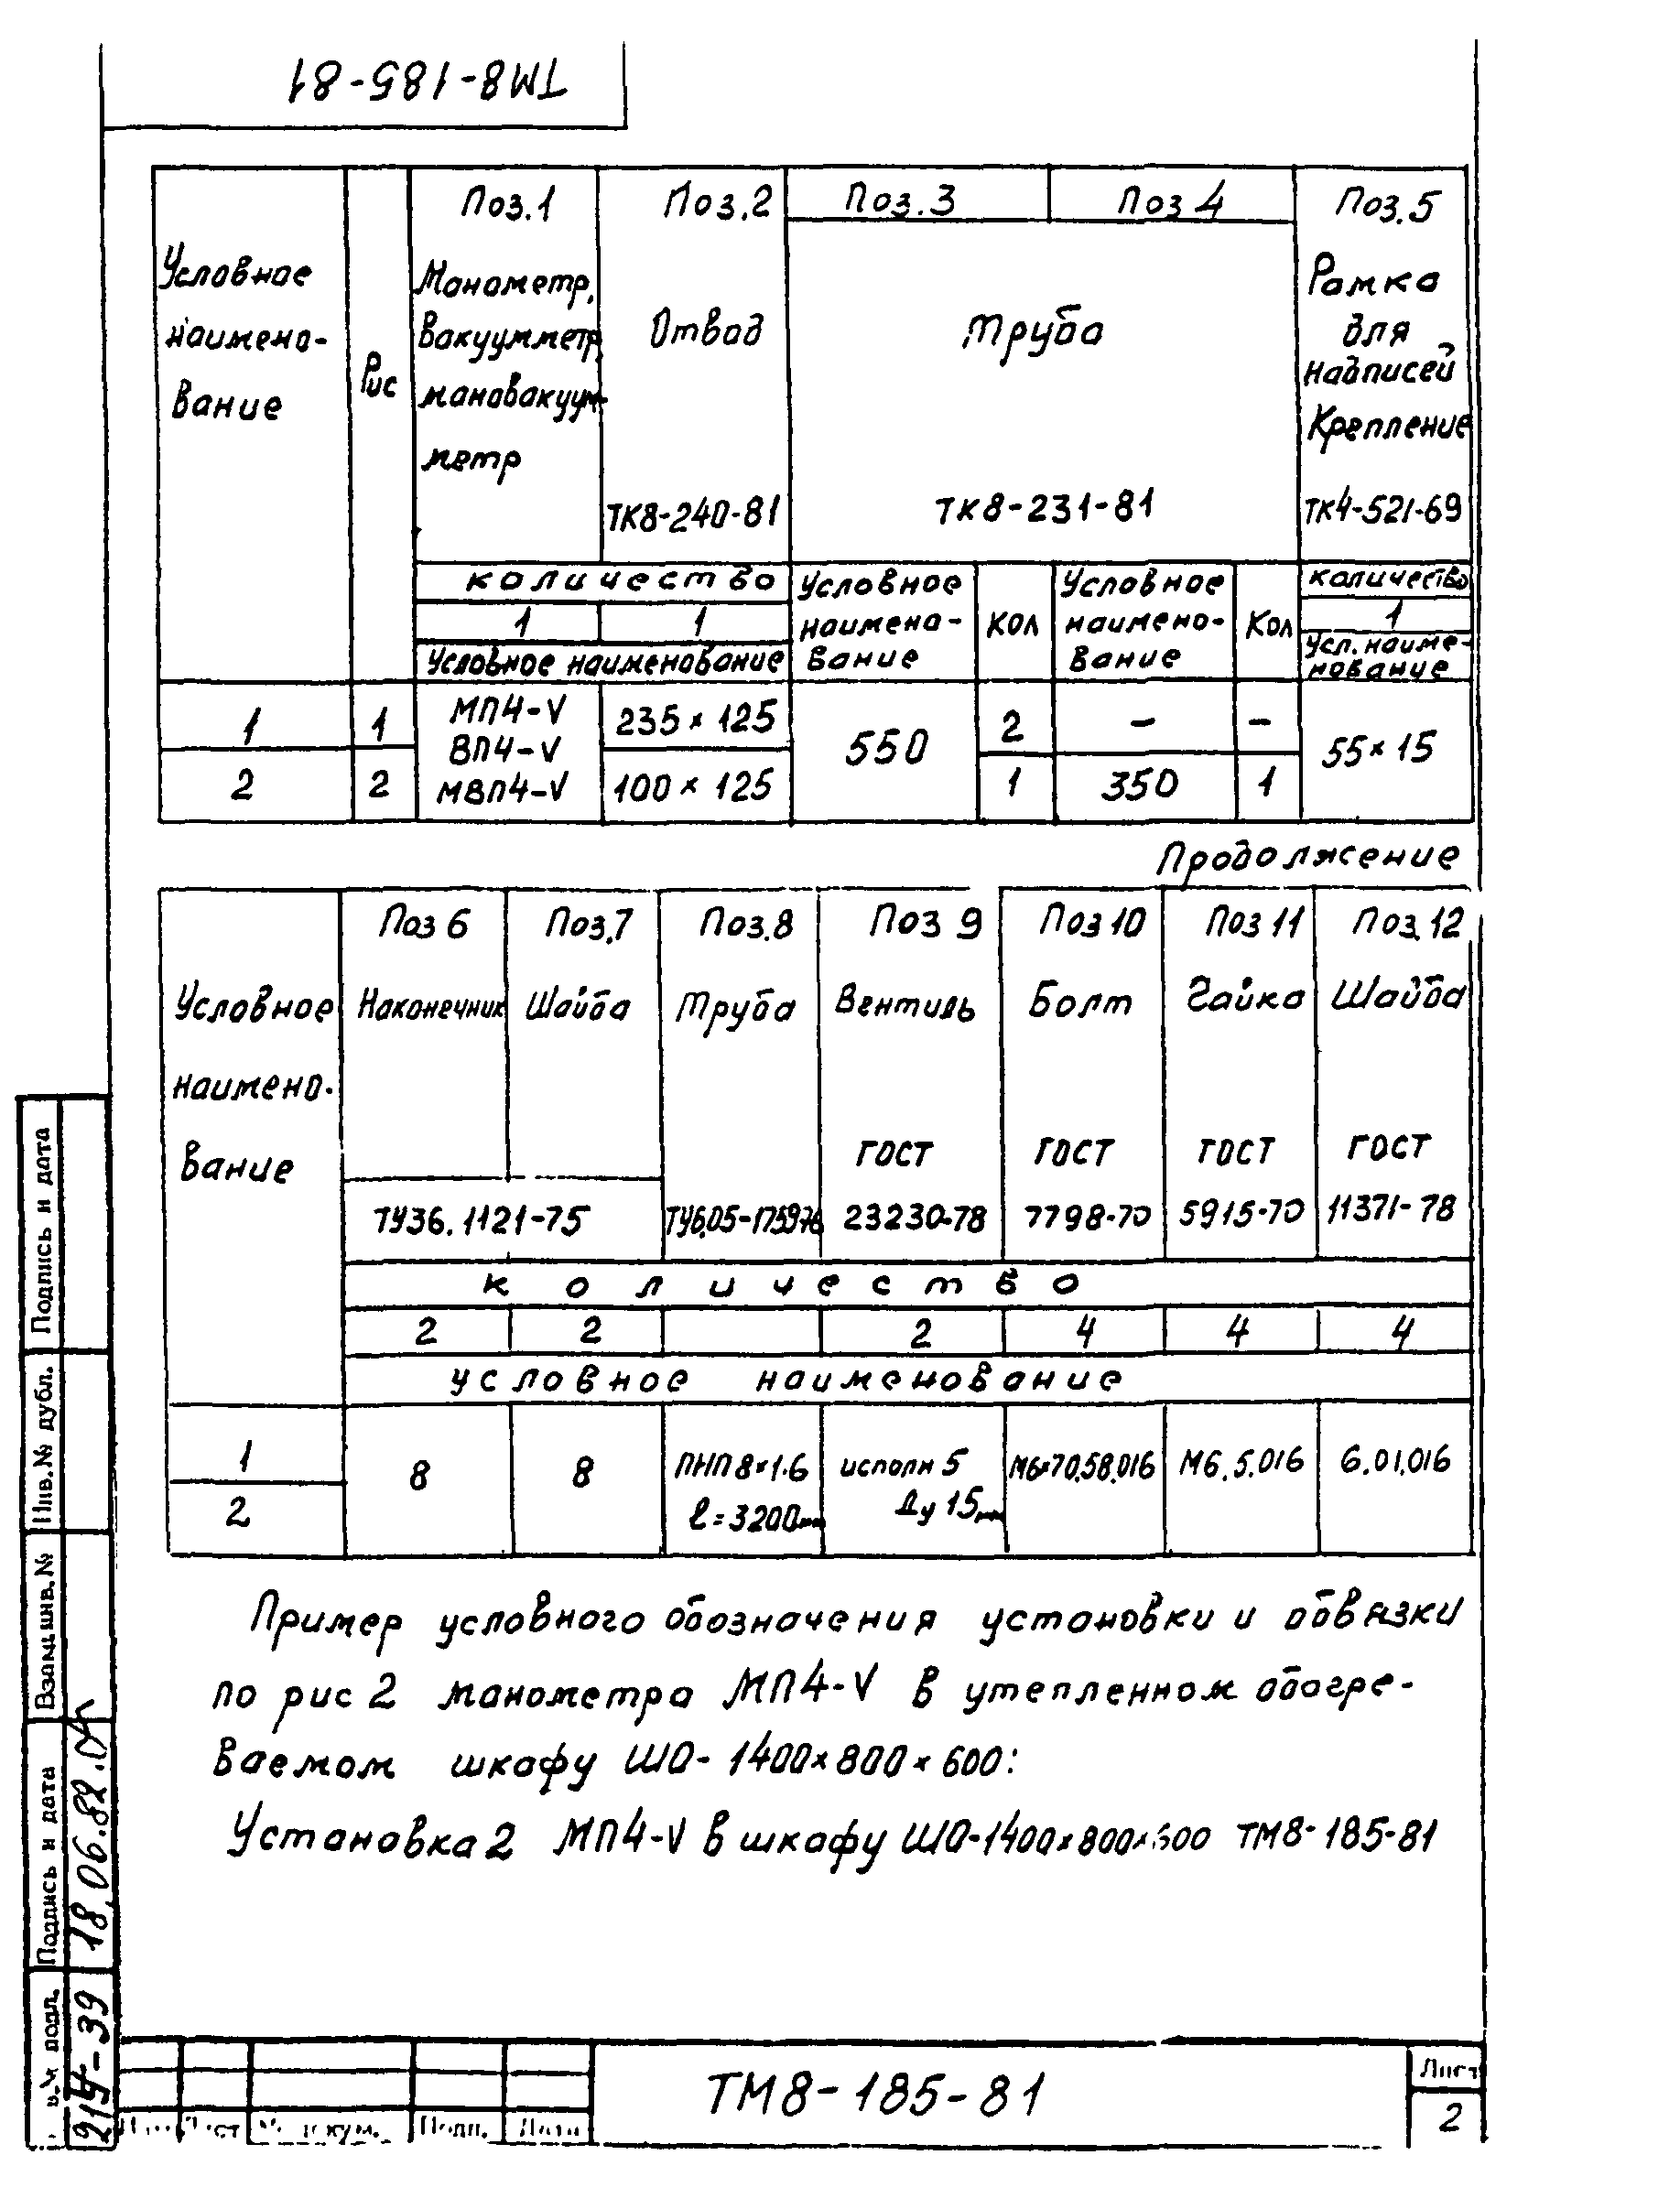 ТМ8-185-81
Поз.1 Поз.2 Поз.3 Поз 4 Поз.5
Условное наимено- вание
Рис
Манометр, вакуумметр, мановакуум- метр
Отвод
ТК8-240-81
Труба
ТК8-231-81
Рамка для надписей
Крепление
ТК4-521-69
количество
1 1
Условное наименование
Условное наимено- вание
Кол
Условное наимено- вание
Кол
количество
1
Усл. наиме- нование
1 1 МП4-V 235×125 550 2 - - 55×15
ВП4-V
2 2 МВП4-V 100×125 1 350 1
Продолжение
Поз 6 Поз.7 Поз.8 Поз 9 Поз 10 Поз 11 Поз.12
Условное наимено- вание
Наконечник Шайба Труба Вентиль Болт Гайка Шайба
ГОСТ ГОСТ ГОСТ ГОСТ
ТУ36.1121-75 23230-78 7798-70 5915-70 11371-78
количество
2 2 2 4 4 4
условное наименование
1 8 8 ПНП 8×1.6 исполн 5 М6×70.58.016 М6.5.016 6.01.016
2 ℓ=3200мм Ду 15мм
Пример условного обозначения установки и обвязки
по рис 2 манометра МП4-V в утепленном обогре-
ваемом шкафу ШО-1400×800×600:
Установка 2 МП4-V в шкафу ШО-1400×800×600 ТМ8-185-81
Подпись и дата
Инв.№ дубл.
Взам.инв.№
Подпись и дата
18.06.82
подл.
ТМ8-185-81
Лист
2
Подп. Дата